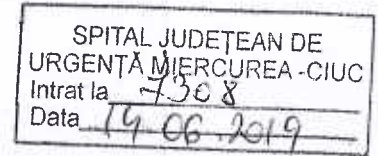 SPITAL JUDEȚEAN DE
URGENȚĂ MIERCUREA-CIUC
Intrat la 7308
Data 14 06. 2019